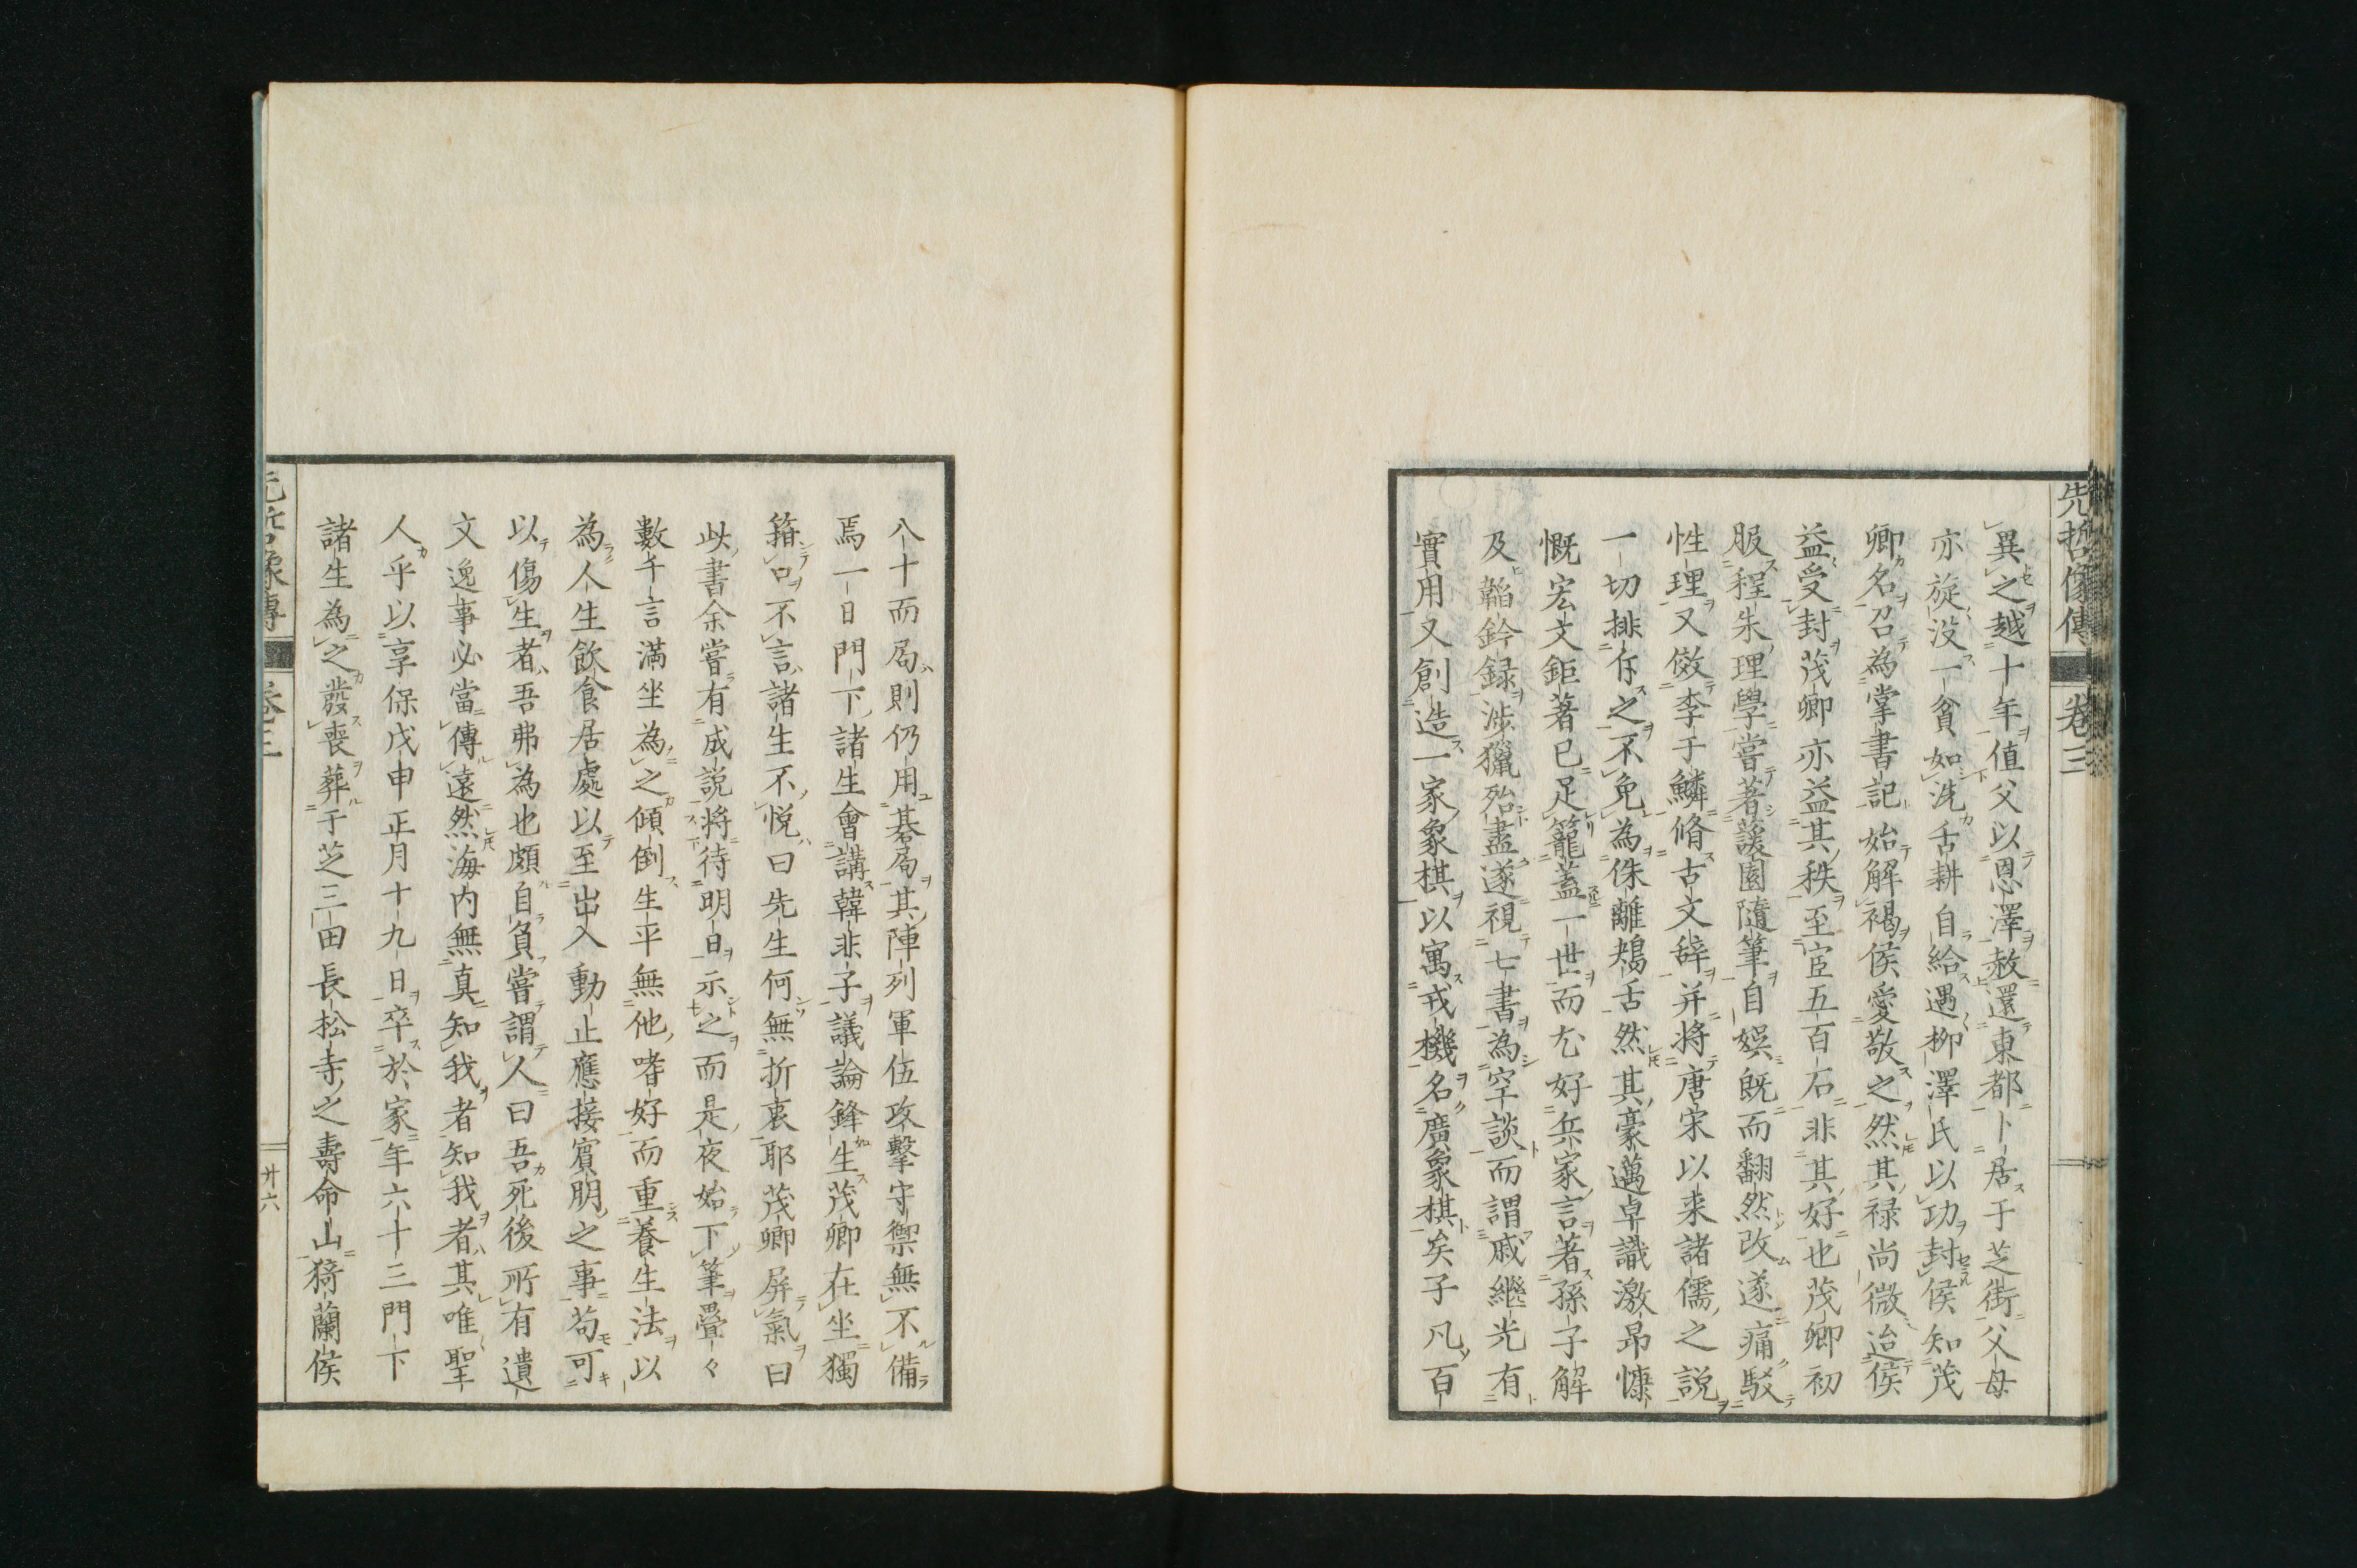 先哲像傳 卷三
異之越十年値父以恩澤赦還東都卜居于芝街父母
亦旋没一貧如洗舌耕自給遇柳澤氏以功封侯知茂
卿名召為掌書記始解褐侯愛敬之然其禄尚微迨侯
益受封茂卿亦益其秩至宦五百石非其好也茂卿初
服程朱理學嘗著蘐園隨筆自娯既而翻然改遂痛駁
性理又倣李于鱗脩古文辭并將唐宋以来諸儒之説
一切排斥之不免為侏離鴂舌然其豪邁卓識激昂慷
慨宏文鉅著已足籠蓋一世而尤好兵家言著孫子解
及鞱鈐録涉獵殆盡遂視七書為空談而謂戚繼光有
實用又創造一家象棋以寓戎機名廣象棋矣子凡百
八十而局則仍用碁局其陣列軍伍攻擊守禦無不備
焉一日門下諸生會講韓非子議論鋒生茂卿在坐獨
箝口不言諸生不悅曰先生何無折衷耶茂卿屏氣曰
此書余嘗有成説將待明日示之而是夜始下筆疊々
數千言滿坐為之傾倒生平無他嗜好而重養生法以
為人生飲食居處以至出入動止應接賓朋之事苟可
以傷生者吾弗為也頗自負嘗謂人曰吾死後所有遺
文逸事必當傳遠然海内無真知我者知我者其唯聖
人乎以享保戊申正月十九日卒於家年六十三門下
諸生為之發喪葬于芝三田長松寺之壽命山猗蘭侯
卷三
廿六